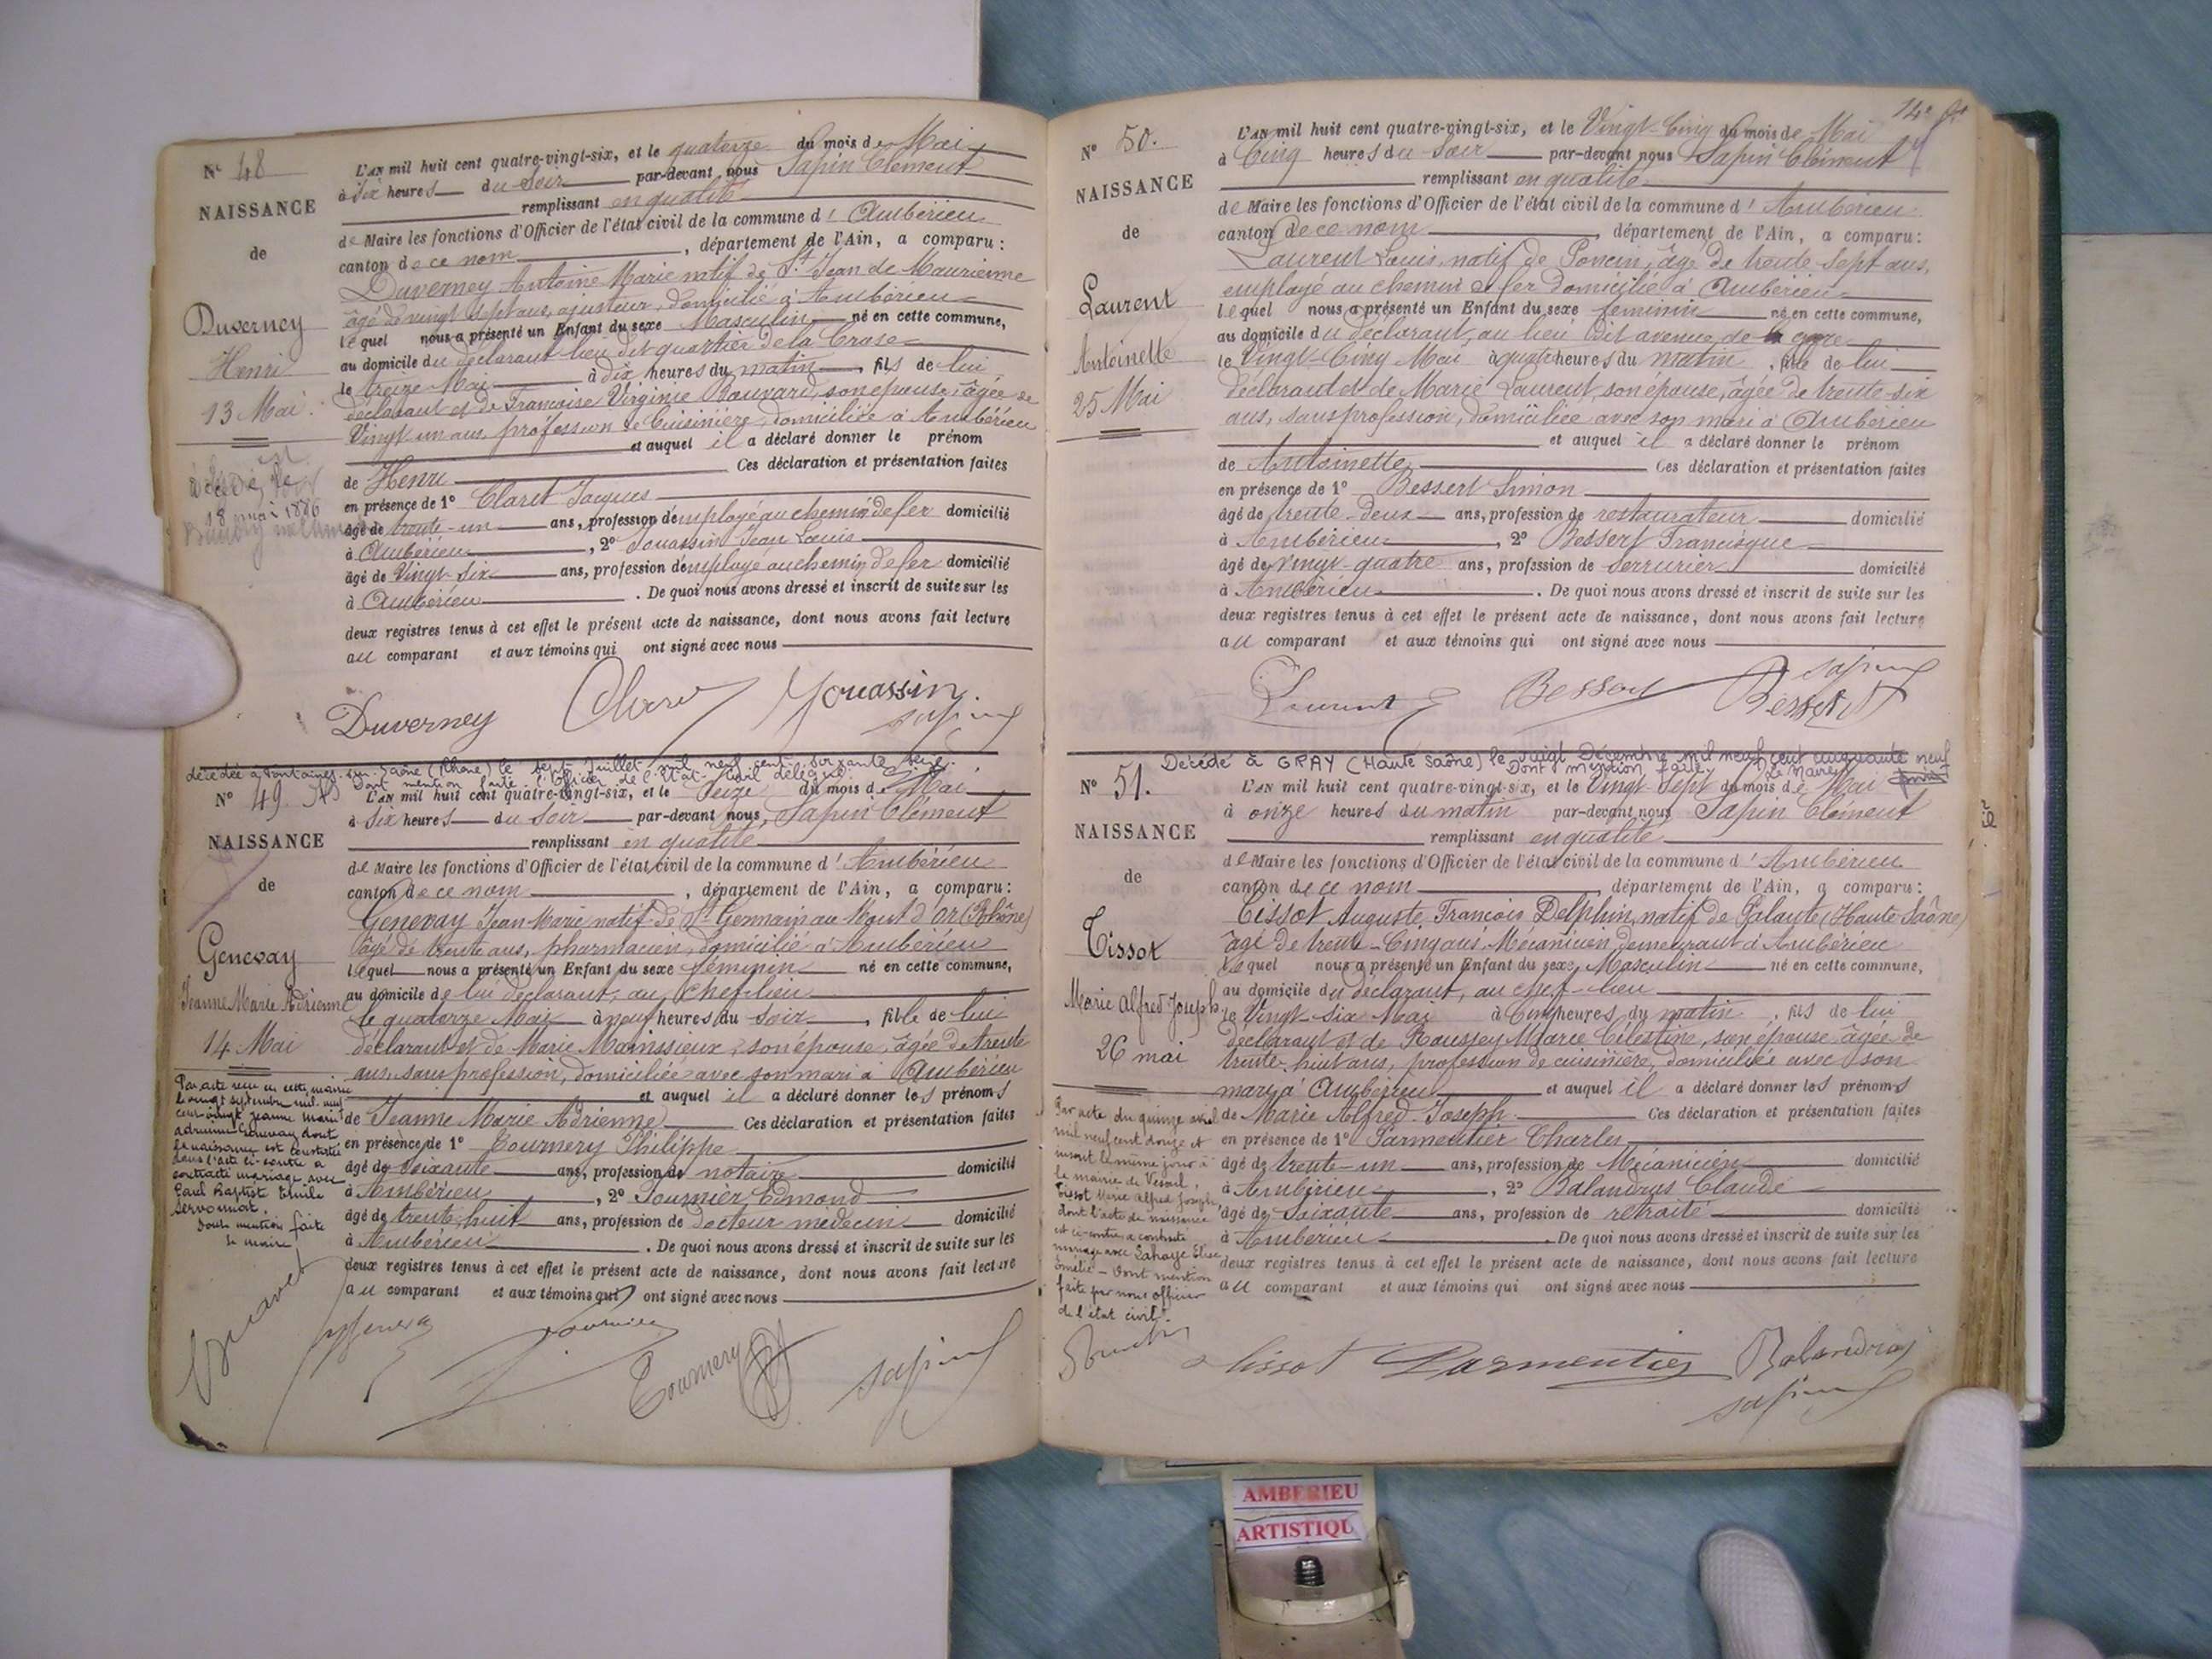 N° 48
NAISSANCE
de
Duverney
Henri
13 Mai
décédé le
18 mai 1886
L'AN mil huit cent quatre-vingt-six, et le quatorze du mois de Mai
à six heures du soir par-devant nous Sapin Clément
remplissant en qualité
de Maire les fonctions d'Officier de l'état civil de la commune d' Ambérieu
canton de ce nom, département de l'Ain, a comparu:
Duverney Antoine Marie natif de St Jean de Maurienne
âgé de vingt sept ans, ajusteur, domicilié à Ambérieu
lequel nous a présenté un Enfant du sexe Masculin né en cette commune,
au domicile du déclarant lieu dit quartier de la Crase
le treize Mai à dix heures du matin, fils de lui
déclarant et de Françoise Virginie Bouvard, son épouse, âgée de
Vingt un ans, profession de Cuisinière, domiciliée à Ambérieu
et auquel il a déclaré donner le prénom
de Henri Ces déclaration et présentation faites
en présence de 1° Claret Jacques
âgé de trente-un ans, profession d'employé au chemin de fer domicilié
à Ambérieu, 2° Jouassin Jean Louis
âgé de Vingt-six ans, profession d'employé au chemin de fer domicilié
à Ambérieu. De quoi nous avons dressé et inscrit de suite sur les
deux registres tenus à cet effet le présent acte de naissance, dont nous avons fait lecture
au comparant et aux témoins qui ont signé avec nous
Duverney Claret Jouassin
Sapin
décédée à Fontaines-sur-Saône (Rhône) le sept Juillet mil neuf cent soixante seize.
Dont mention faite. l'officier de l'Etat-Civil délégué.
N° 49
NAISSANCE
de
Genevay
Jeanne Marie Adrienne
14 Mai
Par acte reçu en cette mairie
le vingt septembre mil neuf
cent vingt Jeanne Marie
Adrienne Genevay dont
la naissance est constatée
dans l'acte ci-contre a
contracté mariage avec
Paul Baptiste Emile
Servonnat.
Dont mention faite
le maire
L'AN mil huit cent quatre-vingt-six, et le Seize du mois de Mai
à six heures du soir par-devant nous, Sapin Clément
remplissant en qualité
de Maire les fonctions d'Officier de l'état civil de la commune d' Ambérieu
canton de ce nom, département de l'Ain, a comparu:
Genevay Jean Marie natif de St Germain au Mont d'or (Rhône)
âgé de trente ans, pharmacien, domicilié à Ambérieu
lequel nous a présenté un Enfant du sexe féminin né en cette commune,
au domicile de lui déclarant, au chef-lieu
le quatorze Mai à neuf heures du soir, fille de lui
déclarant et de Marie Mainssieux, son épouse, âgée de trente
ans, sans profession, domiciliée avec son mari à Ambérieu
et auquel il a déclaré donner les prénoms
de Jeanne Marie Adrienne Ces déclaration et présentation faites
en présence de 1° Tournery Philippe
âgé de soixante ans, profession de notaire domicilié
à Ambérieu, 2° Fournier Edmond
âgé de trente huit ans, profession de docteur médecin domicilié
à Ambérieu. De quoi nous avons dressé et inscrit de suite sur les
deux registres tenus à cet effet le présent acte de naissance, dont nous avons fait lecture
au comparant et aux témoins qui ont signé avec nous
Fournier Tournery Sapin
N° 50.
NAISSANCE
de
Laurent
Antoinette
25 Mai
14
L'AN mil huit cent quatre-vingt-six, et le Vingt-Cinq du mois de Mai
à Cinq heures du soir par-devant nous Sapin Clément
remplissant en qualité
de Maire les fonctions d'Officier de l'état civil de la commune d' Ambérieu
canton de ce nom, département de l'Ain, a comparu:
Laurent Louis, natif de Poncin, âgé de trente-sept ans,
employé au chemin de fer domicilié à Ambérieu
lequel nous a présenté un Enfant du sexe féminin né en cette commune,
au domicile du déclarant, au lieu dit avenue de la gare
le Vingt-Cinq Mai à quatre heures du matin, fille de lui
déclarant et de Marie Laurent, son épouse, âgée de trente-six
ans, sans profession, domiciliée avec son mari à Ambérieu
et auquel il a déclaré donner le prénom
de Antoinette Ces déclaration et présentation faites
en présence de 1° Bessert Simon
âgé de trente-deux ans, profession de restaurateur domicilié
à Ambérieu, 2° Bessert Francisque
âgé de vingt-quatre ans, profession de serrurier domicilié
à Ambérieu. De quoi nous avons dressé et inscrit de suite sur les
deux registres tenus à cet effet le présent acte de naissance, dont nous avons fait lecture
au comparant et aux témoins qui ont signé avec nous
Laurent Bessert Bessert Sapin
Décédé à GRAY (Haute Saône) le vingt Décembre mil neuf cent cinquante neuf
Dont mention faite. Le Maire
N° 51.
NAISSANCE
de
Tissot
Marie Alfred Joseph
26 mai
Par acte du quinze avril
mil neuf cent douze et
inscrit le même jour à
la mairie de Vesoul,
Tissot Marie Alfred Joseph
dont l'acte de naissance
est ci-contre a contracté
mariage avec Lahaye Elise
Emélie - Dont mention
faite par nous officier
de l'état civil.
L'AN mil huit cent quatre-vingt-six, et le Vingt-Sept du mois de Mai
à onze heures du matin par-devant nous Sapin Clément
remplissant en qualité
de Maire les fonctions d'Officier de l'état civil de la commune d' Ambérieu
canton de ce nom, département de l'Ain, a comparu:
Tissot Auguste François Delphin, natif de Palante (Haute Saône)
âgé de trente-Cinq ans, Mécanicien demeurant à Ambérieu
lequel nous a présenté un Enfant du sexe Masculin né en cette commune,
au domicile du déclarant, au chef-lieu
le Vingt-Six Mai à Cinq heures du matin, fils de lui
déclarant et de Roussey Marie Célestine, son épouse âgée de
trente-huit ans, profession de cuisinière, domiciliée avec son
mari à Ambérieu et auquel il a déclaré donner les prénoms
de Marie Alfred Joseph Ces déclaration et présentation faites
en présence de 1° Parmentier Charles
âgé de trente-un ans, profession de Mécanicien domicilié
à Ambérieu, 2° Balandras Claude
âgé de Soixante ans, profession de retraité domicilié
à Ambérieu. De quoi nous avons dressé et inscrit de suite sur les
deux registres tenus à cet effet le présent acte de naissance, dont nous avons fait lecture
au comparant et aux témoins qui ont signé avec nous
Tissot Parmentier Balandras
Sapin
AMBERIEU
ARTISTIQU